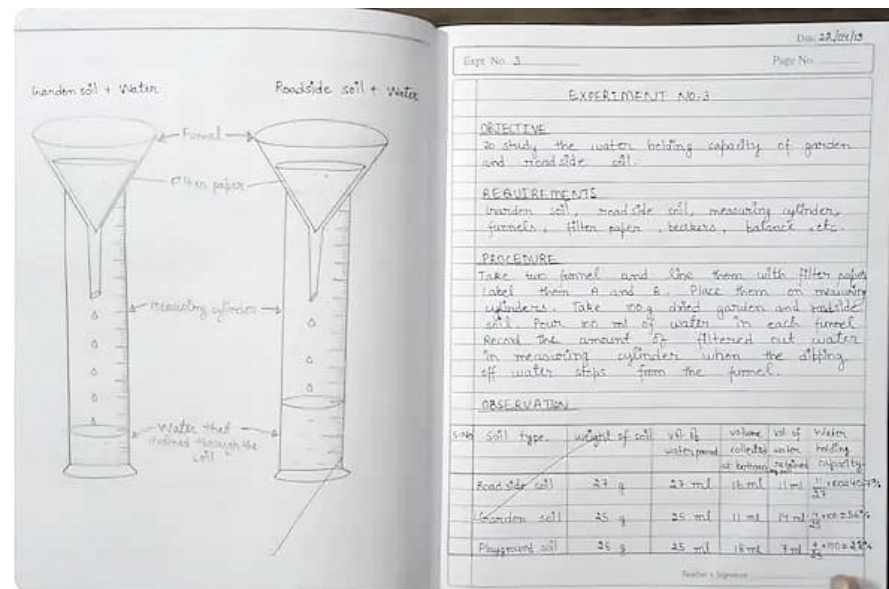 Garden soil + Water
Roadside soil + Water
Funnel
Filter paper
measuring cylinder
Water that
drained through the
soil
Date 22/04/19
Expt. No. 3
Page No.
EXPERIMENT NO:3
OBJECTIVE
To study the water holding capacity of garden
and roadside soil.
REQUIREMENTS
Garden soil, road side soil, measuring cylinder,
funnels, filter paper, beakers, balance etc.
PROCEDURE
Take two funnel and line them with filter paper
Label them A and B. Place them on measuring
cylinders. Take 100g dried garden and roadside
soil. Pour 100 ml of water in each funnel
Record the amount of filtered out water
in measuring cylinder when the dipping
off water stops from the funnel.
OBSERVATION
S.No Soil type. weight of soil vol. of water poured volume collected at bottom vol of water retained Water holding capacity
Road side soil 27 g 27 ml 16 ml 11 ml 11/27 ×100=40.7%
Garden soil 25 g 25 ml 11 ml 14 ml 14/25 ×100=56%
Playground soil 25 g 25 ml 18 ml 7 ml 7/25 ×100=28%
Teacher's Signature